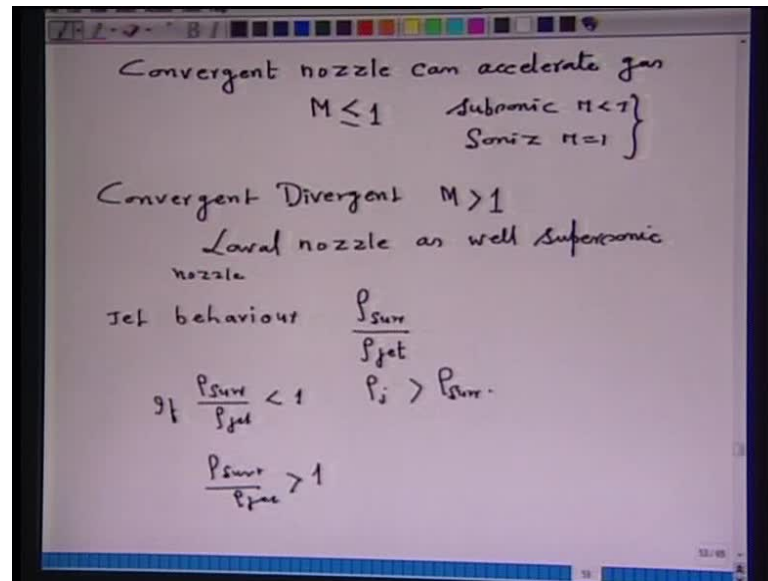 Convergent nozzle can accelerate gas
M ≤ 1 Subsonic M < 1 }
Soniz M = 1
Convergent Divergent M > 1
Laval nozzle as well Supersonic
nozzle
Jet behaviour ρsurr / ρjet
If ρsurr / ρjet < 1 ρj > ρsurr.
ρsurr / ρjet > 1
53/65
53